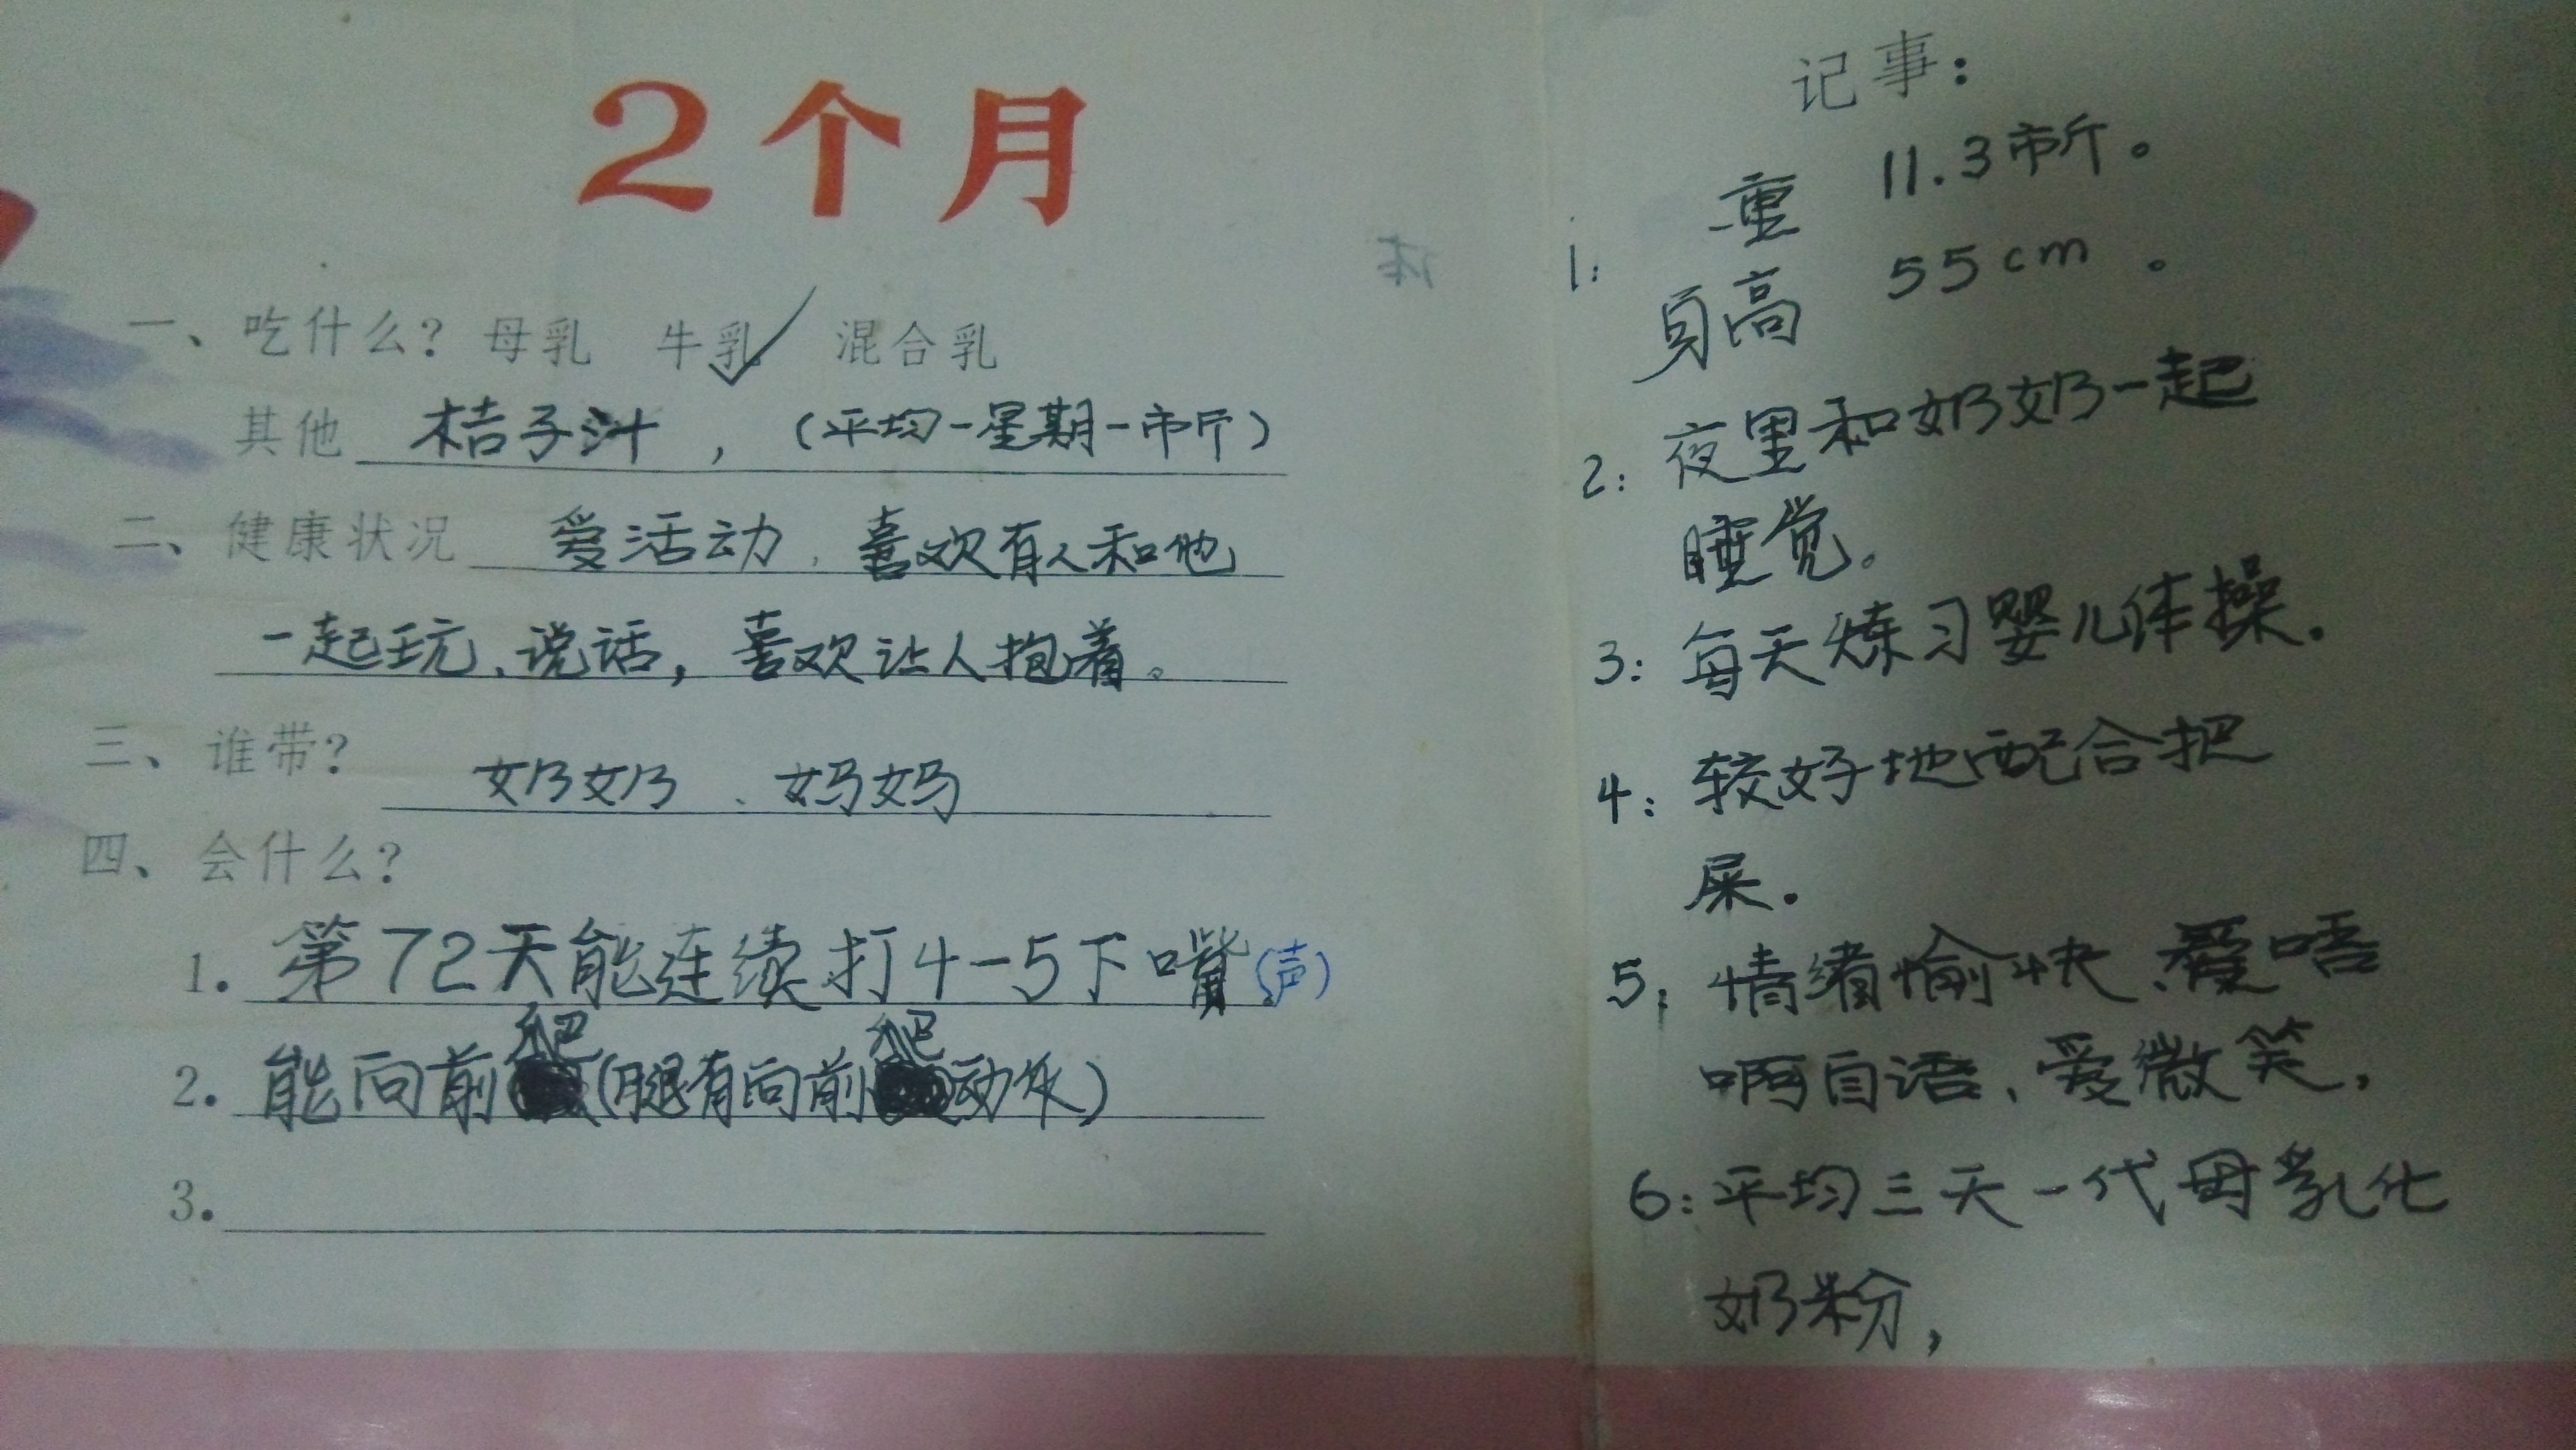 2个月
一、吃什么？母乳 牛乳✓ 混合乳
其他 桔子汁，（平均一星期一市斤）
二、健康状况 爱活动、喜欢有人和他
一起玩、说话，喜欢让人抱着。
三、谁带？ 奶奶、妈妈
四、会什么？
1. 第72天能连续打4-5下嘴(声)
2. 能向前爬(腿有向前爬动作)
3.
记事：
1: 重 11.3市斤。
身高 55cm。
2: 夜里和奶奶一起
睡觉。
3: 每天炼习婴儿体操.
4: 较好地配合把
屎.
5: 情绪愉快、爱唔
啊自语、爱微笑，
6: 平均三天一代母乳化
奶粉，